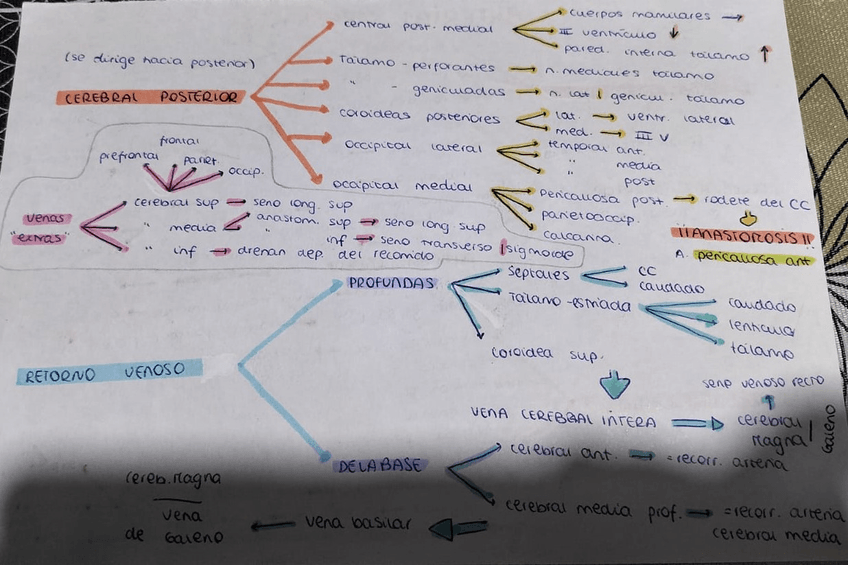 (se dirige hacia posterior)
CEREBRAL POSTERIOR
central post. medial
cuerpos mamilares →
III ventrículo ↓
pared. interna tálamo ↑
Tálamo - perforantes → n. mediales tálamo
" - geniculadas → n. lat | genicul. tálamo
coroideas posteriores
lat. → ventr. lateral
med. → III V
occipital lateral
temporal ant.
" media
" post
occipital medial
pericallosa post → rodete del CC
parietooccip.
calcarina.
¡¡ANASTOROSIS!!
A. pericallosa ant
venas
"extras"
frontal
prefrontal
pariet.
occip.
cerebral sup → seno long. sup
" media
anastom. sup → seno long sup
" inf → seno transverso | sigmoide
" inf → drenan dep. del recorrido
RETORNO VENOSO
PROFUNDAS
septales
CC
caudado
Tálamo-estriada
caudado
lenticula
tálamo
coroidea sup.
VENA CEREBRAL INTERA ⇒ cerebral Magna | Galeno
↑
seno venoso recto
DE LA BASE
cerebral ant. → = recorr. arteria
cerebral media prof. → = recorr. arteria
cerebral media
← vena basilar ←
cereb. Magna
vena
de Galeno